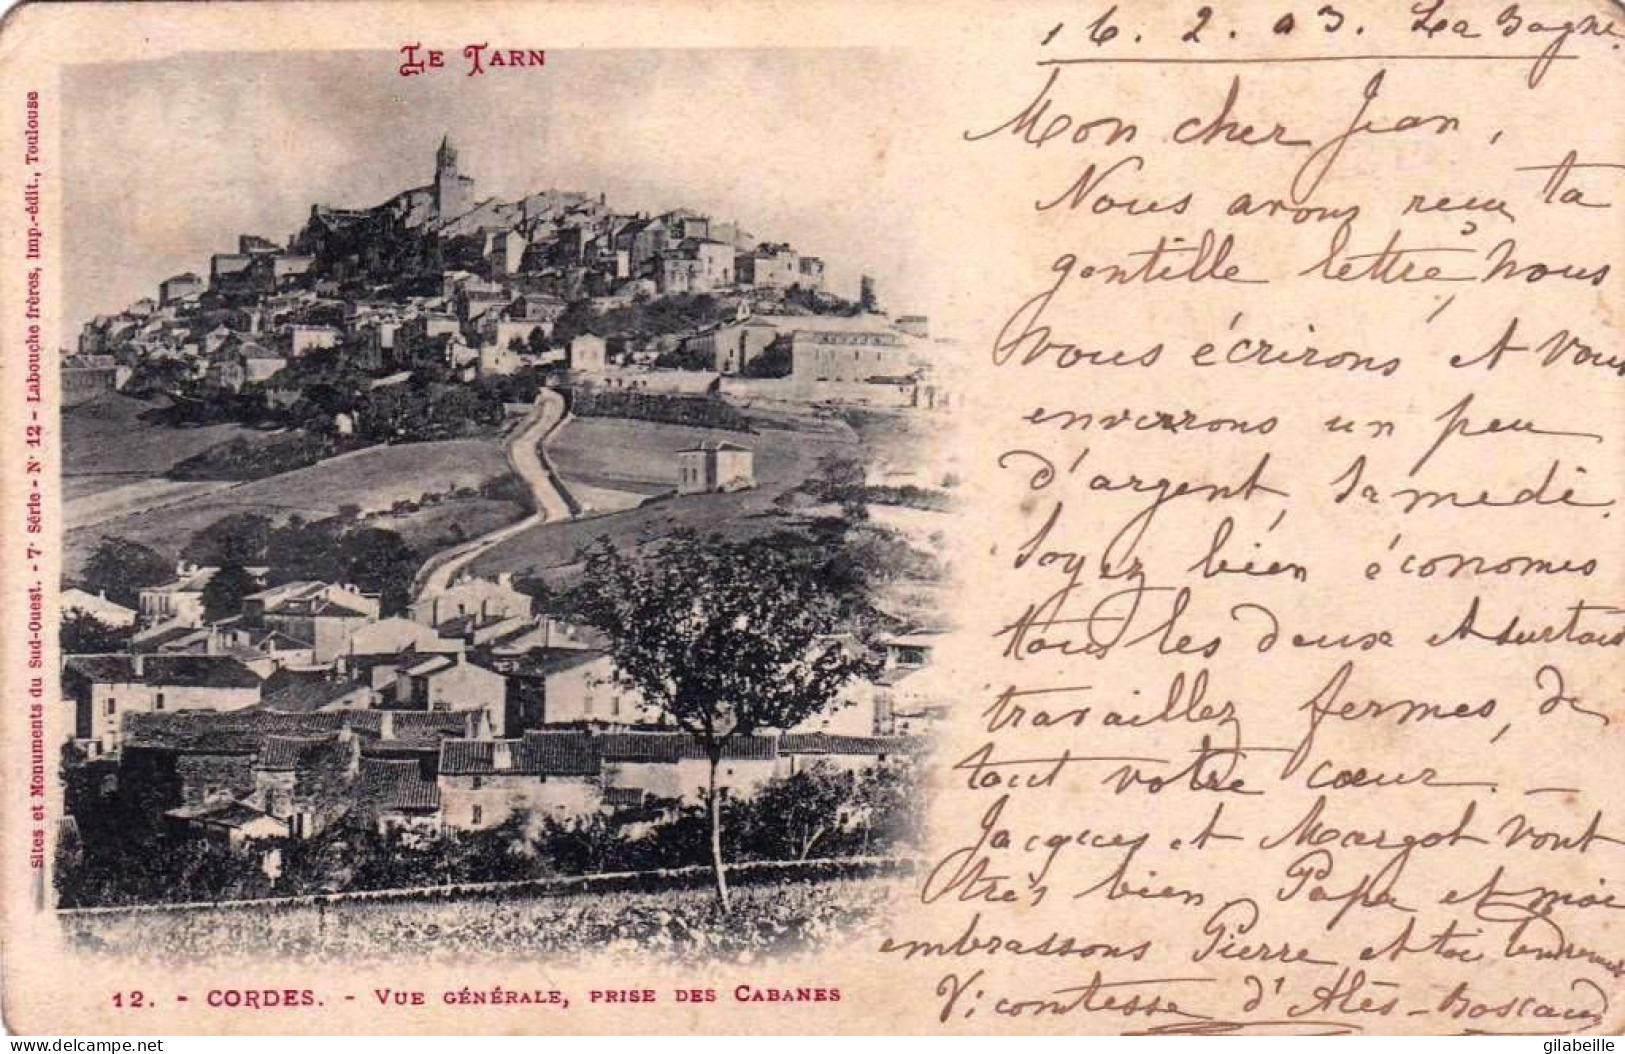 Le Tarn
Sites et Monuments du Sud-Ouest. - 7e Série - No 12 - Labouche frères, Imp.-édit., Toulouse
12. - CORDES. - Vue générale, prise des Cabanes
16. 2. 03. La Bogne.
Mon cher Jean,
Nous avons reçu ta
gentille lettre, nous
vous écrirons et vous
enverrons un peu
d'argent, samedi.
Soyez bien économes
tous les deux et surtout
travaillez fermes, de
tout votre cœur. _
Jacques et Margot vont
très bien Papa et moi
embrassons Pierre et toi tendrement
Vicomtesse d'Alès-Boscaud
delcampe.net
gilabeille